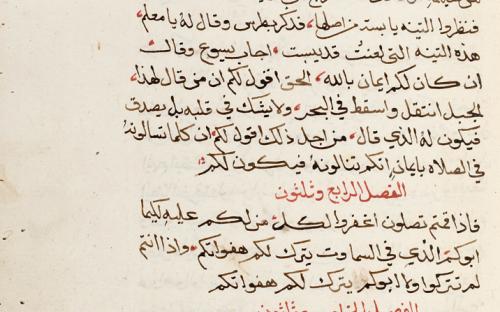 فنظروا التينه يابسه من اصلها، فذكر بطرس وقال له يا معلم،
هذه التينه التي لعنت قد يبست، اجاب يسوع وقال
ان كان لكم ايمان بالله، الحق اقول لكم ان من قال لهذا،
الجبل انتقل واسقط في البحر، ولا يشك في قلبه بل يصدق
فيكون له الذي قال، من اجل ذلك اقول لكم ان كلما تسالونه
في الصلاه بايمان انكم تنالونه فيكون لكم
الفصل الرابع وثلثون
فاذا قمتم تصلون اغفروا لكل من لكم عليه كيما
ابوكم الذي في السماوت يترك لكم هفواتكم، واذا انتم
لم تتركوا ولا ابوكم يترك لكم هفواتكم
الفصل الخامس وثلثون